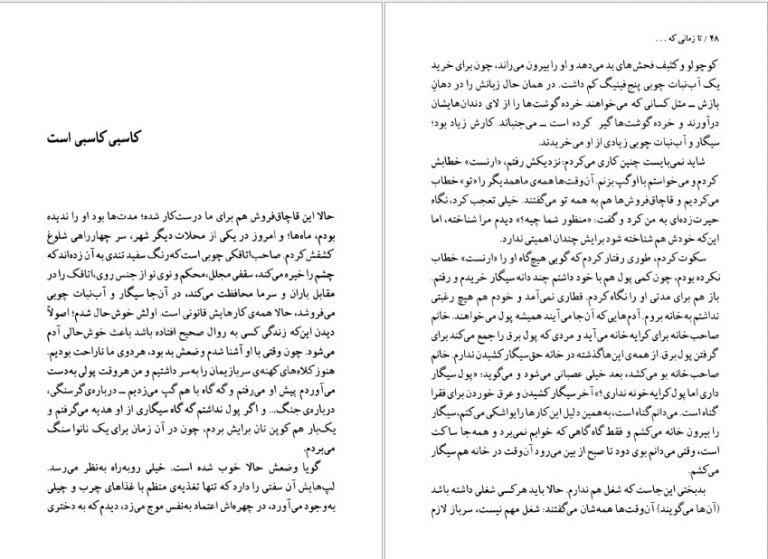 کاسبی کاسبی است
حالا این قاچاق‌فروش هم برای ما درست‌کار شده؛ مدت‌ها بود او را ندیده
بودم، ماه‌ها؛ و امروز در یکی از محلات دیگر شهر، سر چهارراهی شلوغ
کشفش کردم. صاحب‌اتاقکی چوبی است که رنگ سفید تندی به آن زده‌اند که
چشم را خیره می‌کند، سقفی مجلل، محکم و نوی نو از جنس روی، اتاقک را در
مقابل باران و سرما محافظت می‌کند، در آن‌جا سیگار و آب‌نبات چوبی
می‌فروشد، حالا همه‌ی کارهایش قانونی است. اولش خوش‌حال شدم؛ اصولاً
دیدن این‌که زندگی کسی به روال صحیح افتاده باشد باعث خوش‌حالی آدم
می‌شود. چون وقتی با او آشنا شدم وضعش بد بود، هر دوی ما ناراحت بودیم.
هنوز کلاه‌های کهنه‌ی سربازیمان را به سر داشتیم و من هروقت پولی به‌دست
می‌آوردم پیش او می‌رفتم و گه گاه با هم گپ می‌زدیم ــ درباره‌ی گرسنگی،
درباره‌ی جنگ... و اگر پول نداشتم گه گاه سیگاری از او هدیه می‌گرفتم و
یک‌بار هم کوپن نان برایش بردم، چون در آن زمان برای یک نانوا سنگ
می‌بردم.
گویا وضعش حالا خوب شده است. خیلی روبه‌راه به‌نظر می‌رسد.
لپ‌هایش آن سفتی را دارد که تنها تغذیه‌ی منظم با غذاهای چرب و چیلی
به‌وجود می‌آورد، در چهره‌اش اعتماد به‌نفس موج می‌زد، دیدم که به دختری
۴۸ / تا زمانی که ...
کوچولو و کثیف فحش‌های بد می‌دهد و او را بیرون می‌راند، چون برای خرید
یک آب‌نبات چوبی پنج فینیگ کم داشت. در همان حال زبانش را در دهان
بازش ــ مثل کسانی که می‌خواهند خرده گوشت‌ها را از لای دندان‌هایشان
درآورند و خرده گوشت‌ها گیر کرده است ــ می‌جنباند. کارش زیاد بود؛
سیگار و آب‌نبات چوبی زیادی از او می‌خریدند.
شاید نمی‌بایست چنین کاری می‌کردم: نزدیکش رفتم، «ارنست» خطابش
کردم و می‌خواستم با او گپ بزنم. آن‌وقت‌ها همه‌ی ما همدیگر را «تو» خطاب
می‌کردیم و قاچاق‌فروش‌ها هم به همه تو می‌گفتند. خیلی تعجب کرد، نگاه
حیرت‌زده‌ای به من کرد و گفت: «منظور شما چیه؟» دیدم مرا شناخته، اما
این‌که خودش هم شناخته شود برایش چندان اهمیتی ندارد.
سکوت کردم، طوری رفتار کردم که گویی هیچ‌گاه او را «ارنست» خطاب
نکرده بودم، چون کمی پول هم با خود داشتم چند دانه سیگار خریدم و رفتم.
باز هم برای مدتی او را نگاه کردم. قطاری نمی‌آمد و خودم هم هیچ رغبتی
نداشتم به خانه بروم. آدم‌هایی که آن‌جا می‌آیند همیشه پول می‌خواهند. خانم
صاحب‌خانه برای کرایه خانه می‌آید و مردی که پول برق را جمع می‌کند برای
گرفتن پول برق. از همه‌ی این‌ها گذشته در خانه حق سیگار کشیدن ندارم. خانم
صاحب‌خانه بو می‌کشد، بعد خیلی عصبانی می‌شود و می‌گوید: «پول سیگار
داری اما پول کرایه خونه نداری؟» آخر سیگار کشیدن و عرق خوردن برای فقرا
گناه است. می‌دانم گناه است، به‌همین دلیل این کارها را یواشکی می‌کنم، سیگار
را بیرون خانه می‌کشم و فقط گاه گاهی که خوابم نمی‌برد و همه‌جا ساکت
است، وقتی می‌دانم بوی دود تا صبح از بین می‌رود آن‌وقت در خانه هم سیگار
می‌کشم.
بدبختی این‌جاست که شغل هم ندارم. حالا باید هرکسی شغلی داشته باشد
(آن‌ها می‌گویند) آن‌وقت‌ها همه‌شان می‌گفتند: شغل مهم نیست، سرباز لازم